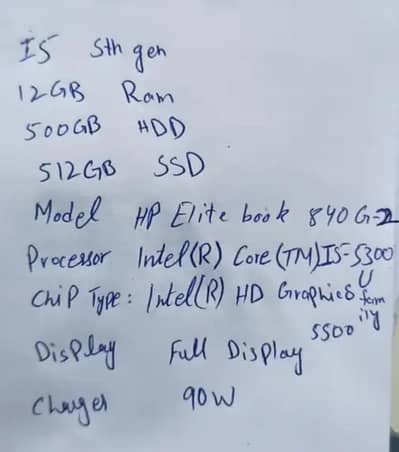 I5 5th gen
12GB Ram
500GB HDD
512GB SSD
Model HP Elite book 840 G-2
Processor Intel(R) Core(TM)I5-5300U
Chip Type: Intel(R) HD Graphics family
5500
Display Full Display
Charger 90W